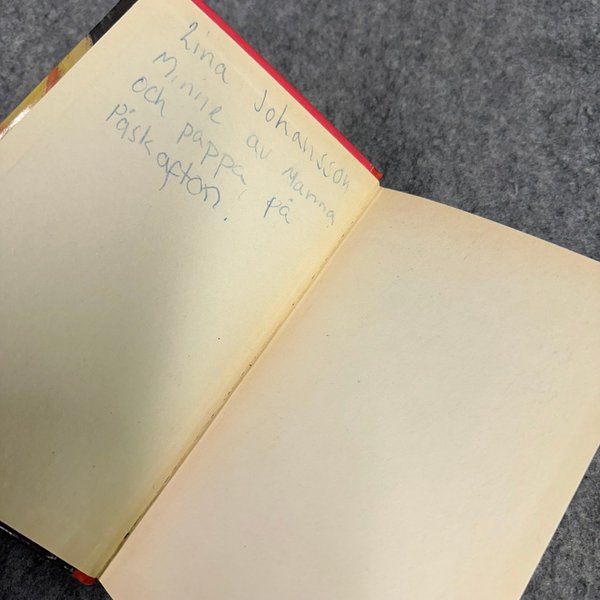 Lina Johansson
Minne av Mamma
och pappa, på
påskafton.